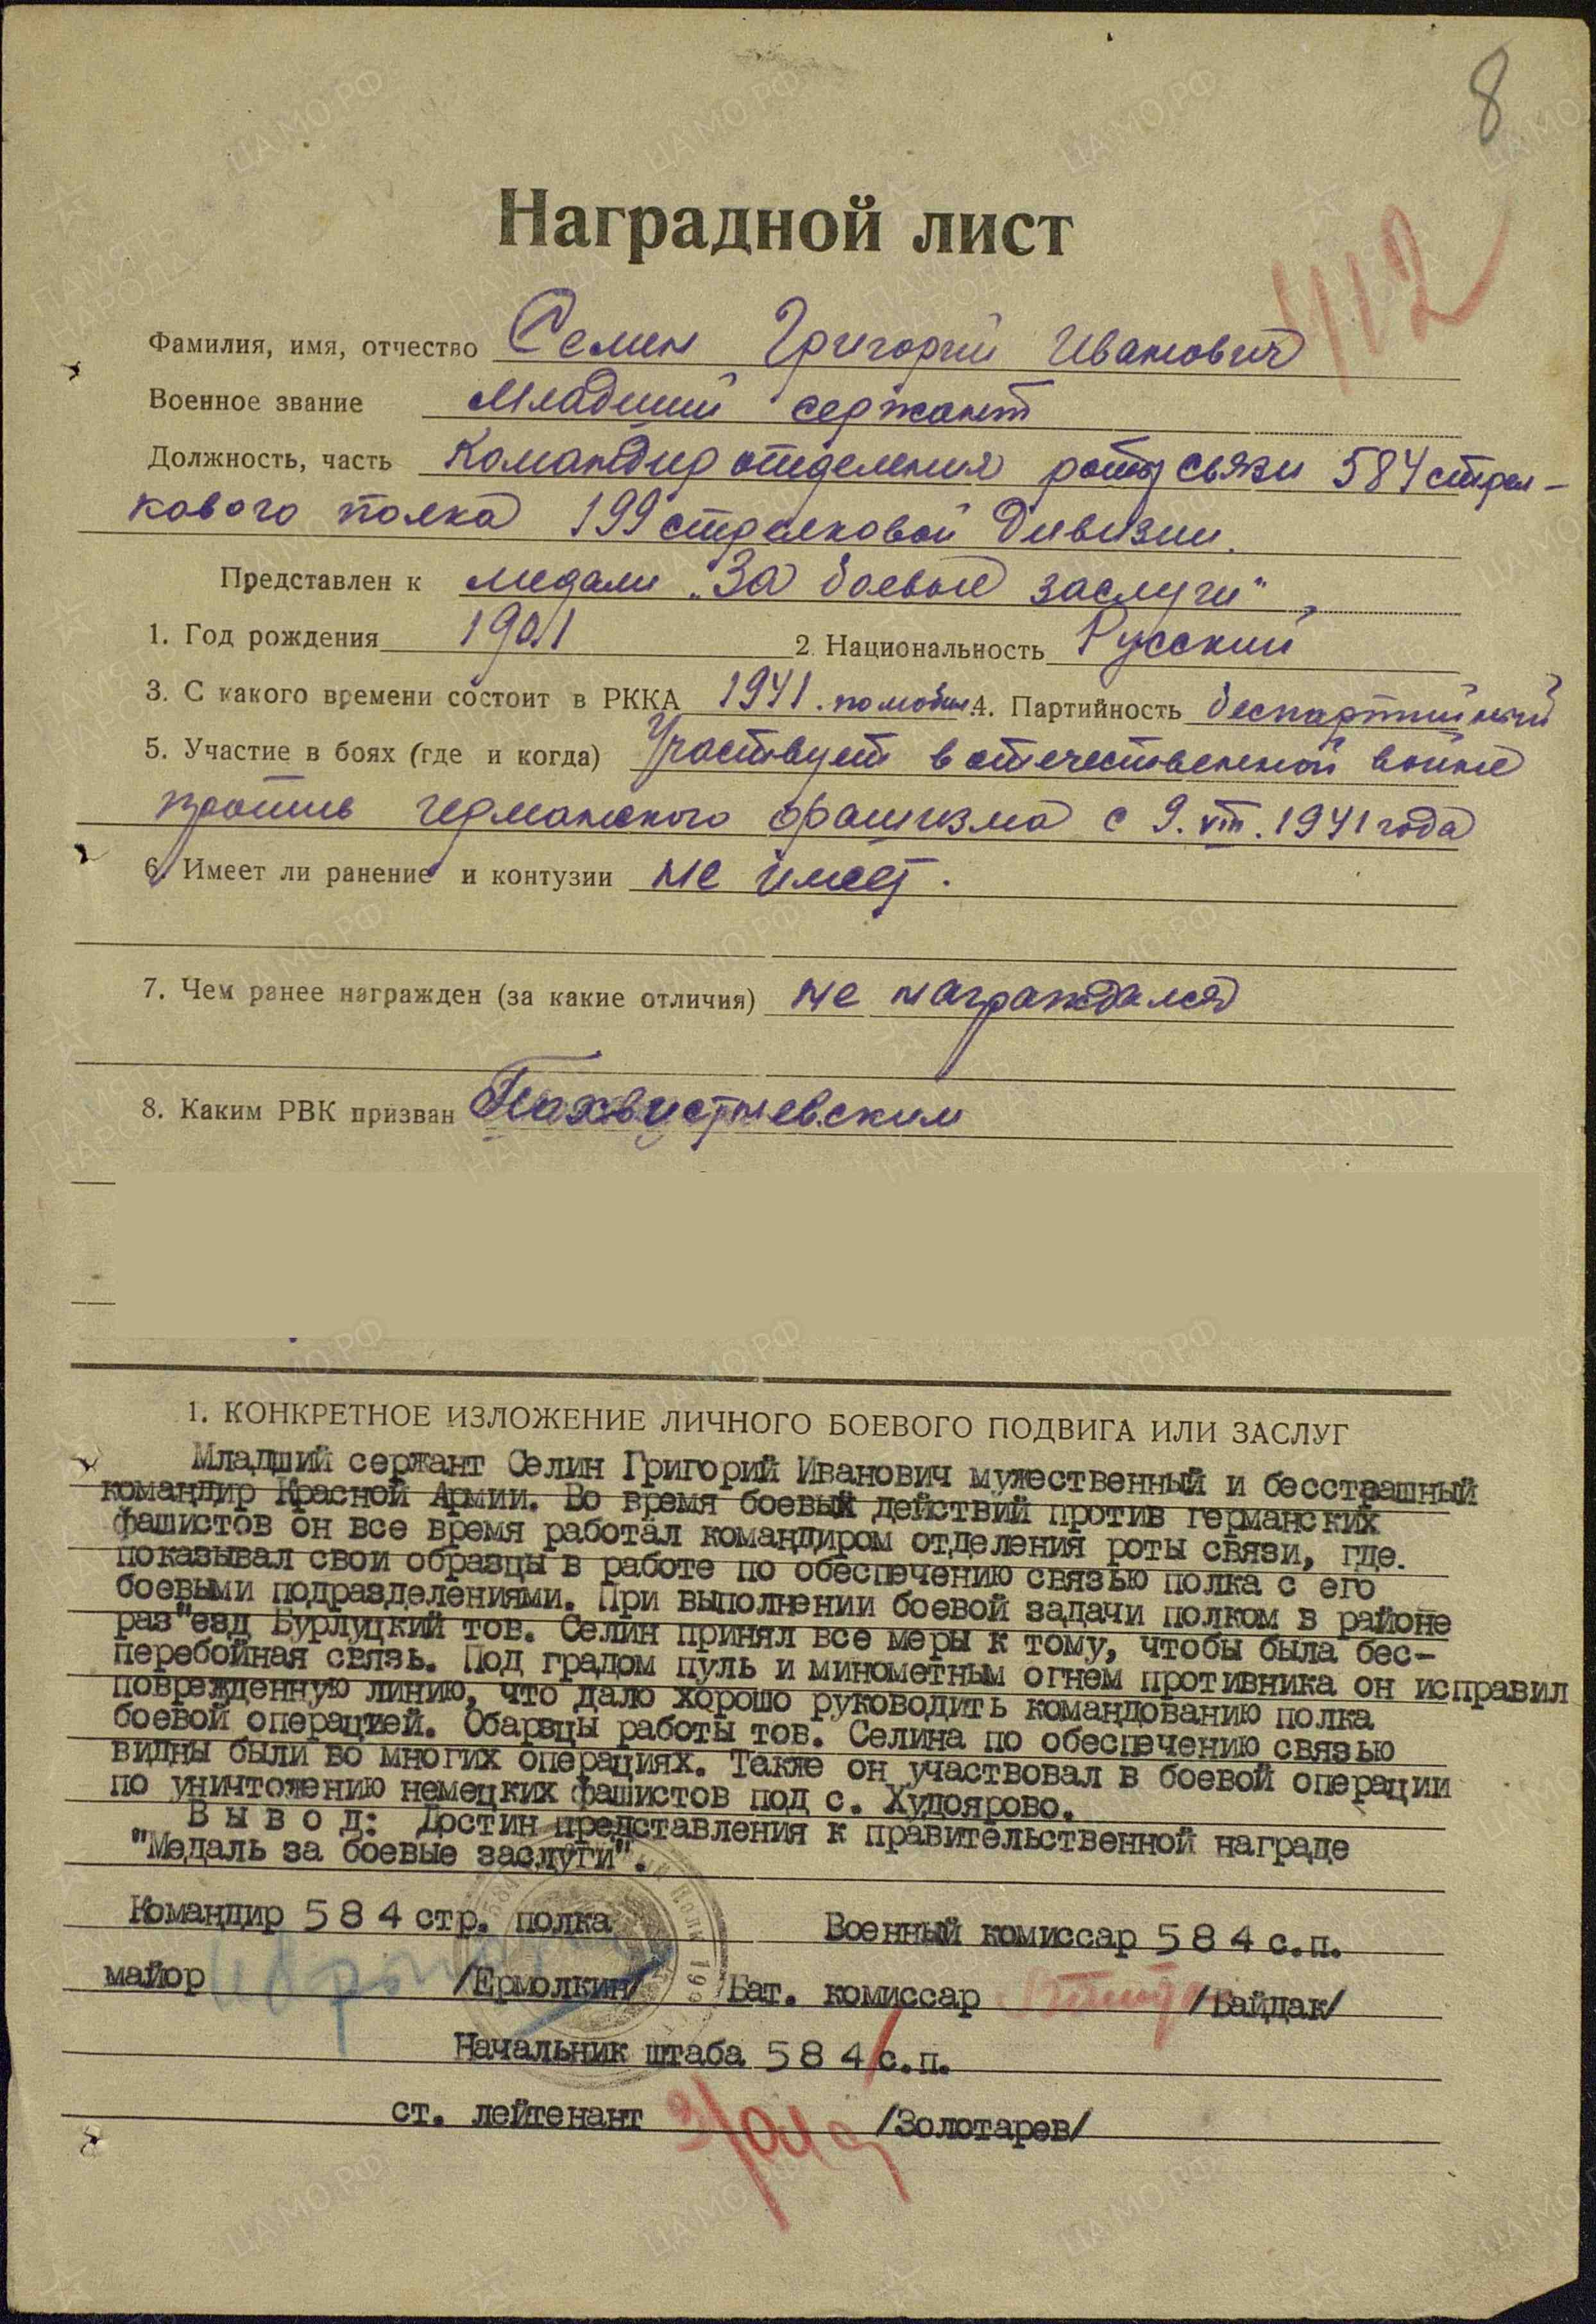 8
Наградной лист
412
Фамилия, имя, отчество Селин Григорий Иванович
Военное звание Младший сержант
Должность, часть Командир отделения роты связи 584 стрел-
кового полка 199 стрелковой Дивизии.
Представлен к медали „За боевые заслуги"
1. Год рождения 1901 2. Национальность Русский
3. С какого времени состоит в РККА 1941. по мобил. 4. Партийность беспартийный
5. Участие в боях (где и когда) Участвует в отечественной войне
против германского фашизма с 9.VIII.1941 года
6. Имеет ли ранение и контузии не имеет.
7. Чем ранее награжден (за какие отличия) не награждался
8. Каким РВК призван Похвистневским
1. КОНКРЕТНОЕ ИЗЛОЖЕНИЕ ЛИЧНОГО БОЕВОГО ПОДВИГА ИЛИ ЗАСЛУГ
Младший сержант Селин Григорий Иванович мужественный и бесстрашный
командир Красной Армии. Во время боевых действий против германских
фашистов он все время работал командиром отделения роты связи, где.
показывал свои образцы в работе по обеспечению связью полка с его
боевыми подразделениями. При выполнении боевой задачи полком в районе
раз"езд Бурлуцкий тов. Селин принял все меры к тому, чтобы была бес-
перебойная связь. Под градом пуль и минометным огнем противника он исправил
поврежденную линию, что дало хорошо руководить командованию полка
боевой операцией. Обарзцы работы тов. Селина по обеспечению связью
видны были во многих операциях. Также он участвовал в боевой операции
по уничтожению немецких фашистов под с. Худоярово.
В ы в о д: Достин представления к правительственной награде
"Медаль за боевые заслуги".
Командир 584 стр. полка Военный комиссар 584 с.п.
майор /Ермолкин/ Бат. комиссар /Байдак/
Начальник штаба 584 с.п.
ст. лейтенант /Золотарев/